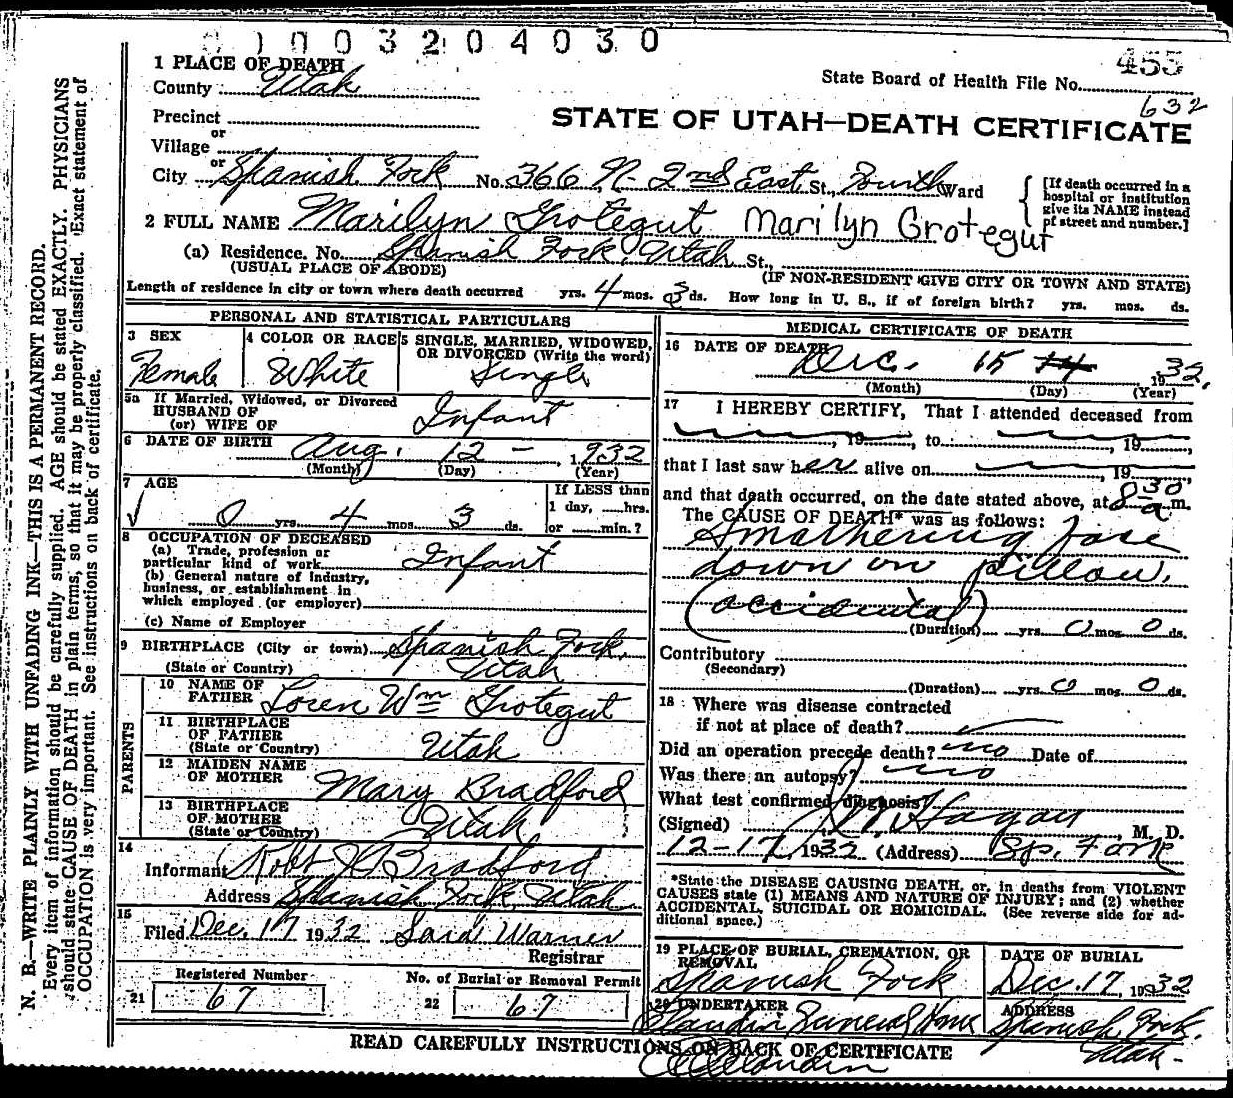 0 1 0 0 3 2 0 4 0 3 0
455
1 PLACE OF DEATH
County Utah
State Board of Health File No.
632
Precinct
STATE OF UTAH—DEATH CERTIFICATE
or
Village
or
City Spanish Fork No. 366 N- 2nd East St., Fourth Ward
[If death occurred in a hospital or institution give its NAME instead of street and number.]
2 FULL NAME Marilyn Grotegut Marilyn Grotegut
(a) Residence. No. Spanish Fork, Utah St.,
(USUAL PLACE OF ABODE) (IF NON-RESIDENT GIVE CITY OR TOWN AND STATE)
Length of residence in city or town where death occurred yrs. 4 mos. 3 ds. How long in U. S., if of foreign birth? yrs. mos. ds.
PERSONAL AND STATISTICAL PARTICULARS
3 SEX
Female
4 COLOR OR RACE
White
5 SINGLE, MARRIED, WIDOWED, OR DIVORCED (Write the word)
Single
5a If Married, Widowed, or Divorced
HUSBAND OF
(or) WIFE OF
Infant
6 DATE OF BIRTH Aug. 12 - , 1932
(Month) (Day) (Year)
7 AGE
0 yrs. 4 mos. 3 ds.
If LESS than
1 day, hrs.
or min.?
8 OCCUPATION OF DECEASED
(a) Trade, profession or
particular kind of work Infant
(b) General nature of industry,
business, or establishment in
which employed (or employer)
(c) Name of Employer
9 BIRTHPLACE (City or town) Spanish Fork,
(State or Country) Utah
PARENTS
10 NAME OF
FATHER Loren Wm Grotegut
11 BIRTHPLACE
OF FATHER
(State or Country) Utah
12 MAIDEN NAME
OF MOTHER Mary Bradford
13 BIRTHPLACE
OF MOTHER
(State or Country) Utah
14
Informant Robt Bradford
Address Spanish Fork, Utah
15
Filed Dec. 17 1932 Warner
Registrar
Registered Number
21 67
No. of Burial or Removal Permit
22 67
MEDICAL CERTIFICATE OF DEATH
16 DATE OF DEATH Dec. 15 14 1932.
(Month) (Day) (Year)
17 I HEREBY CERTIFY, That I attended deceased from
, 19 , to , 19
that I last saw her alive on , 19
and that death occurred, on the date stated above, at 8 30 a m.
The CAUSE OF DEATH* was as follows:
Smothering face
down on pillow.
(accidental)
(Duration) yrs. 0 mos. 0 ds.
Contributory
(Secondary)
(Duration) yrs. 0 mos. 0 ds.
18 Where was disease contracted
if not at place of death?
Did an operation precede death? no Date of
Was there an autopsy? no
What test confirmed diagnosis?
(Signed) Hagan, M. D.
12-17, 1932 (Address) Sp. Fork
*State the DISEASE CAUSING DEATH, or, in deaths from VIOLENT
CAUSES state (1) MEANS AND NATURE OF INJURY; and (2) whether
ACCIDENTAL, SUICIDAL OR HOMICIDAL. (See reverse side for ad-
ditional space.)
19 PLACE OF BURIAL, CREMATION, OR
REMOVAL
Spanish Fork
DATE OF BURIAL
Dec. 17, 1932
20 UNDERTAKER
Claudin Funeral Home
ADDRESS
Spanish Fork,
Utah-
Claudin
READ CAREFULLY INSTRUCTIONS ON BACK OF CERTIFICATE
N. B.—WRITE PLAINLY WITH UNFADING INK—THIS IS A PERMANENT RECORD.
Every item of information should be carefully supplied. AGE should be stated EXACTLY. PHYSICIANS
should state CAUSE OF DEATH in plain terms, so that it may be properly classified. Exact statement of
OCCUPATION is very important. See instructions on back of certificate.